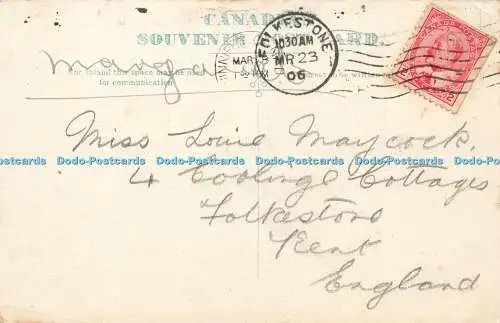 CANADA
SOUVENIR CARD.
FOLKESTONE
10.30 AM
MR 23
06
MAR
For Inland this space may be used
for communication
to be written
Manga
Miss Louie Maycock,
Dodo-Postcards Dodo-Postcards Dodo-Postcards Dodo-Postcards Dodo-Postcards
4 Coolinge Cottages
Folkestone
Kent
England
CANADA POSTAGE
2